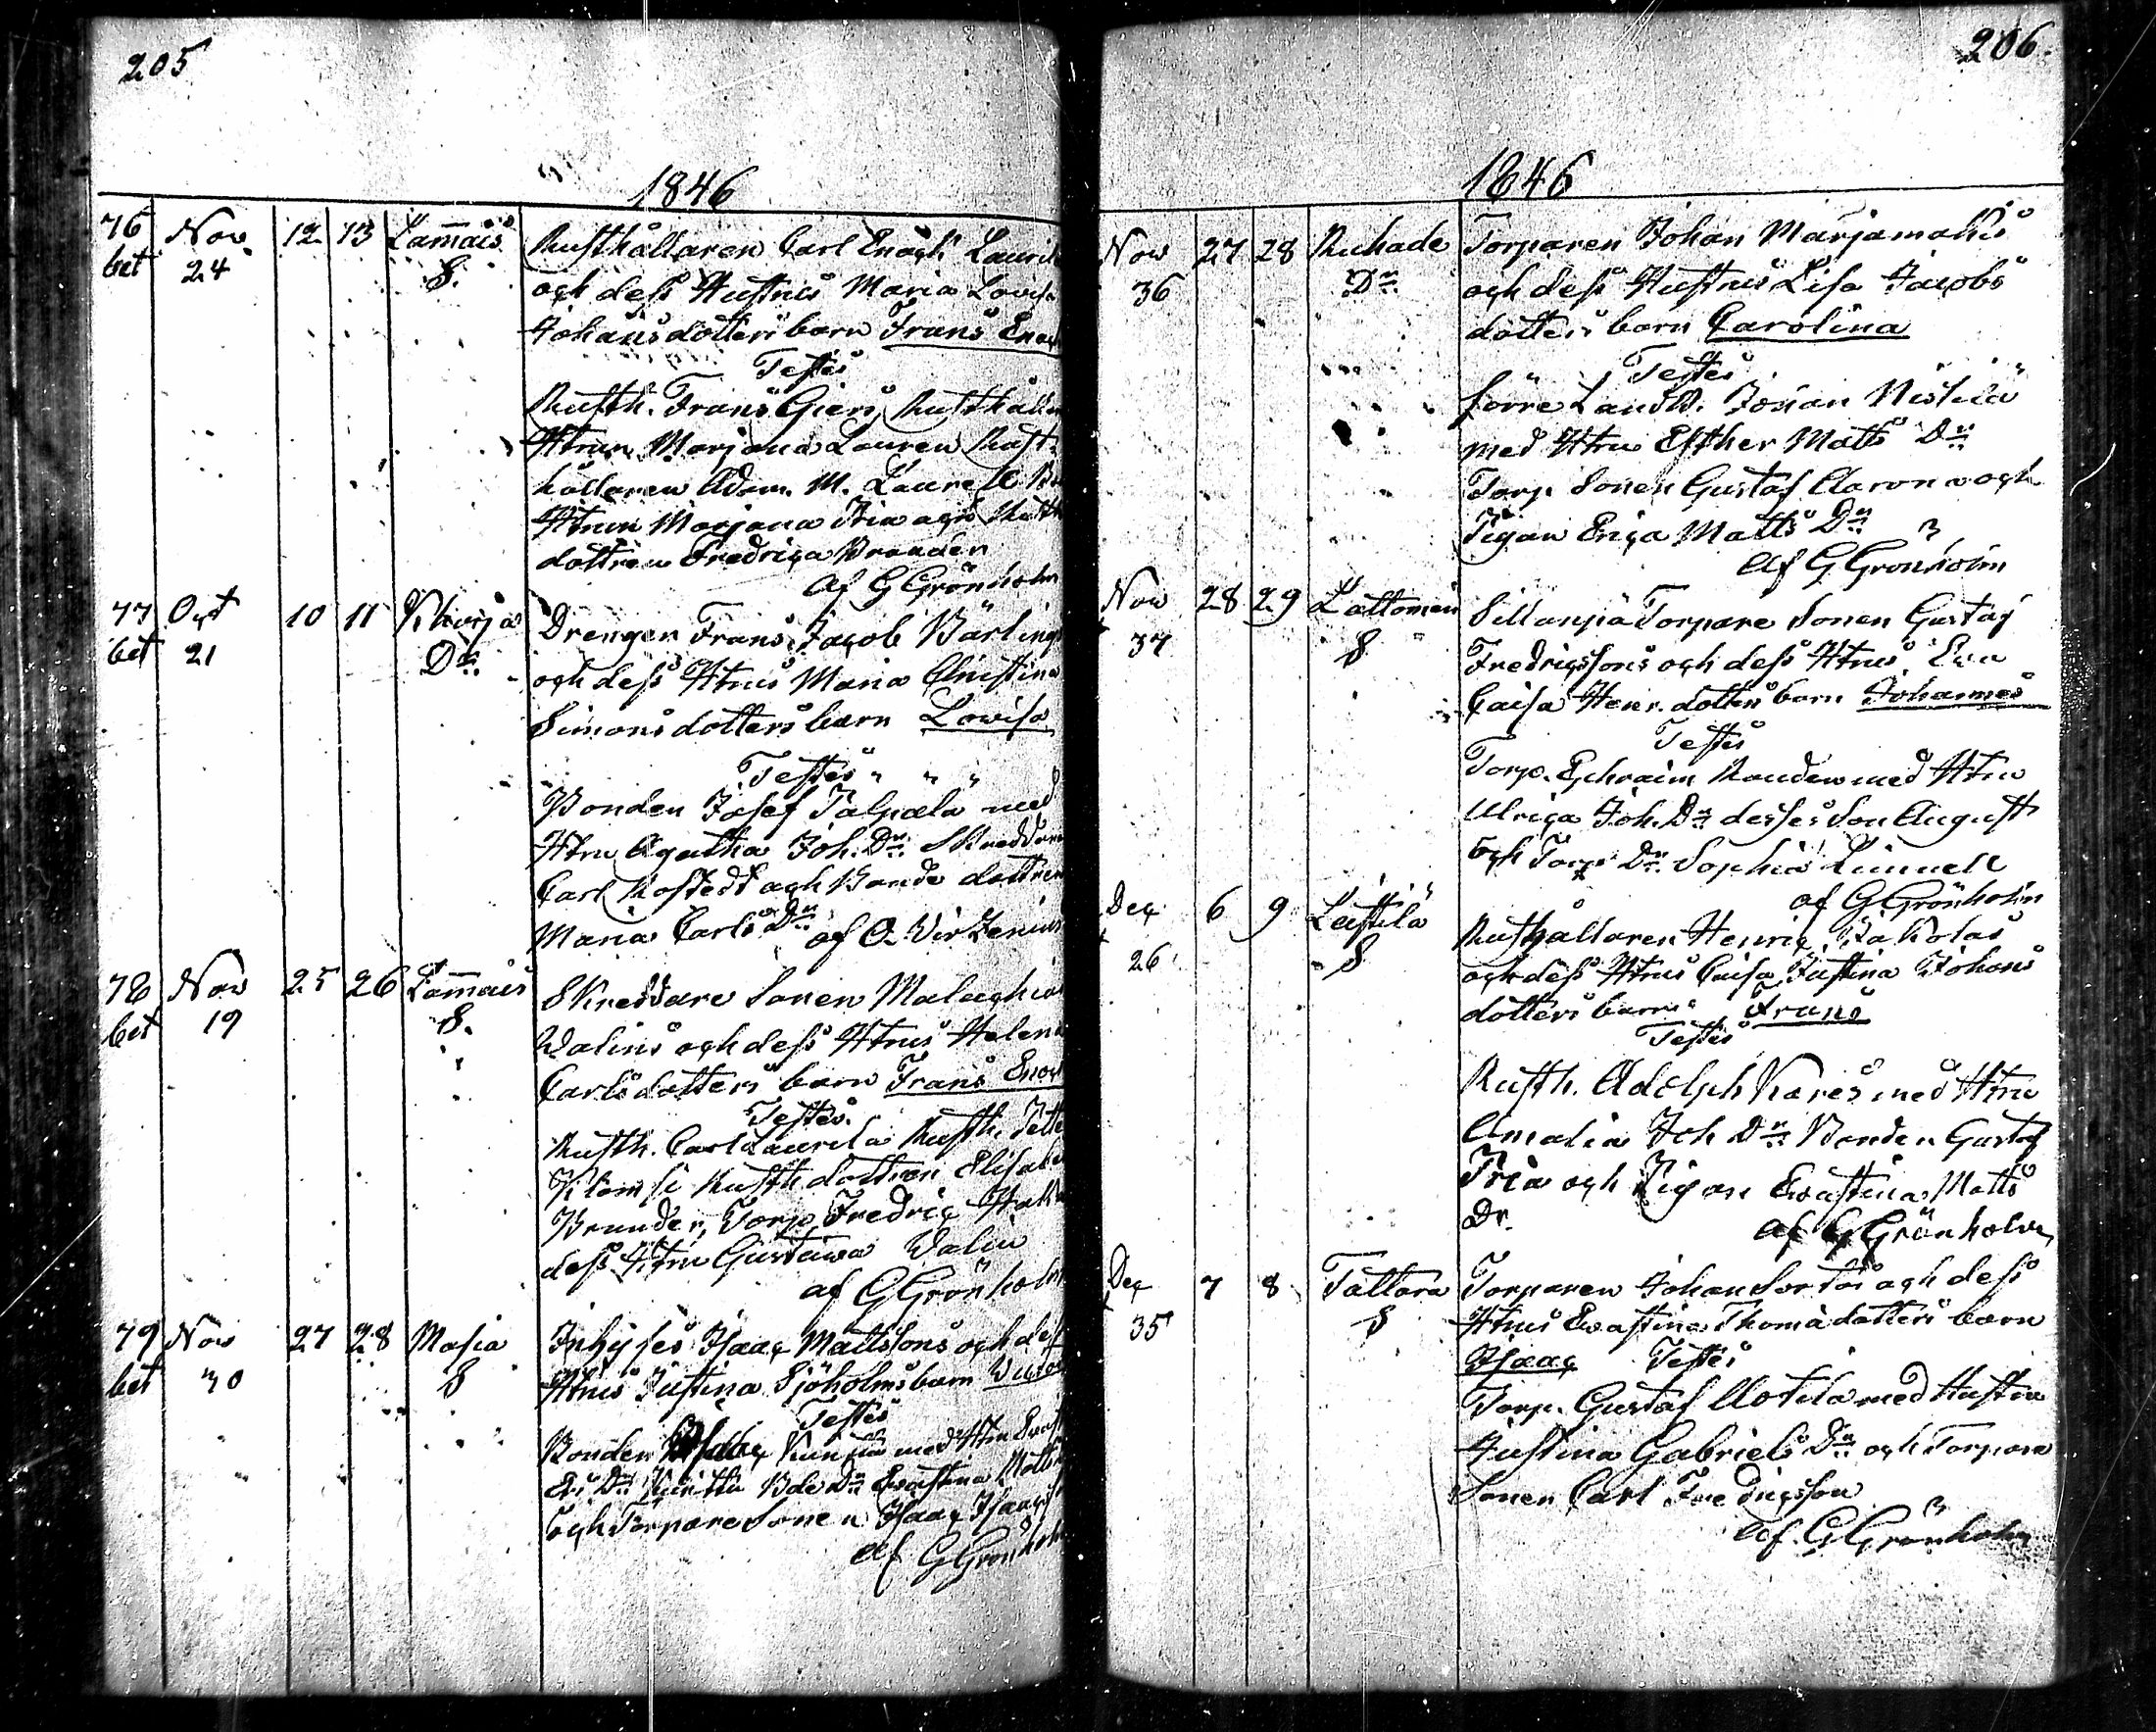 205
1846
76 Nov 12 13 Lam̄ais Rusthållaren Carl Enoch Lauril
bet 24 S. och dess Hustrus Maria Lovisa
Johansdotters barn Frans Enoc
Testes
Rusth. Frans Giers, Rusthåll
Htrun Marjana Lauren Rust-
hållaren Adam. M. Laurell
Htrun Marjana Fria och Rusth
dottren Fredrica Brander
af G Grönholm
77 Oct 10 11 Kharja Drengen Frans Jacob Bärlings
bet 21 Dr. och dess Htrus Maria Christina
Simonsdotters barn Lovisa
Testes
Bonden Josef Talpala med
Htru Agatha Joh. Dr. Skreddaren
Carl Rostedt och Bonde dottren
Maria Carls Dr. af A. Virzenius
78 Nov 25 26 Lam̄ais Skreddare Sonen Malachias
bet 19 S. Walins och dess Htrus Helena
Carlsdotters barn Frans Enoch
Testes.
Rusth. Carl Laurila Rusth.
Rusth dottren Elisab
Brander, Torp. Fredric
dess Htru Gustava Walin
af G Grönholm
79 Nov 27 28 Masia Inhyses Isaac Mattssons och dess
bet 30 S Htrus Justina Sjöholms barn
Testes
Bonden med Htru
Dr. Bde Dr. Evastina Matts
och Torpare Sonen Isaac Isaacs
af G Grönholm
206.
1846
Nov 27 28 Ruhade Torparen Johan Marjamäkis
36 Dr. och dess Hustrus Lisa Jacobs
dotters barn Carolina
Testes
förre Landb. Johan
med Htru Esther Matts Dr.
Torp. Sonen Gustaf Aaron och
Pigan Erica Matts Dr.
af G Grönholm
Nov 28 29 Lattomeri Sillanpä Torpare Sonen Gustaf
37 S Fredricssons och dess Htrus Eva
Caisa Henr. dotters barn Johannes
Testes
Torp. Ephraim Randen med Htru
Ulrica Joh. Dr. desses Son August
och Torp Dr. Sophia Linnell
af G Grönholm
Dec 6 9 Leistilä Rusthållaren Henric Käkolas
26 S och dess Htrus Caisa Justina Johans
dotters barn Frans
Testes
Rusth. Adolph Kares med Htru
Amalia Joh Dr. Bonden Gustaf
Fria och Pigan Evastina Matts
Dr. af G Grönholm
Dec 7 8 Tattara Torparen Johan Sortos och dess
35 S Htrus Evastina Thomadotters barn
Isaac Testes
Torp. Gustaf Uotila med Hustru
Justina Gabriels Dr. och Torpare
Sonen Carl Fredricsson
af. G Grönholm